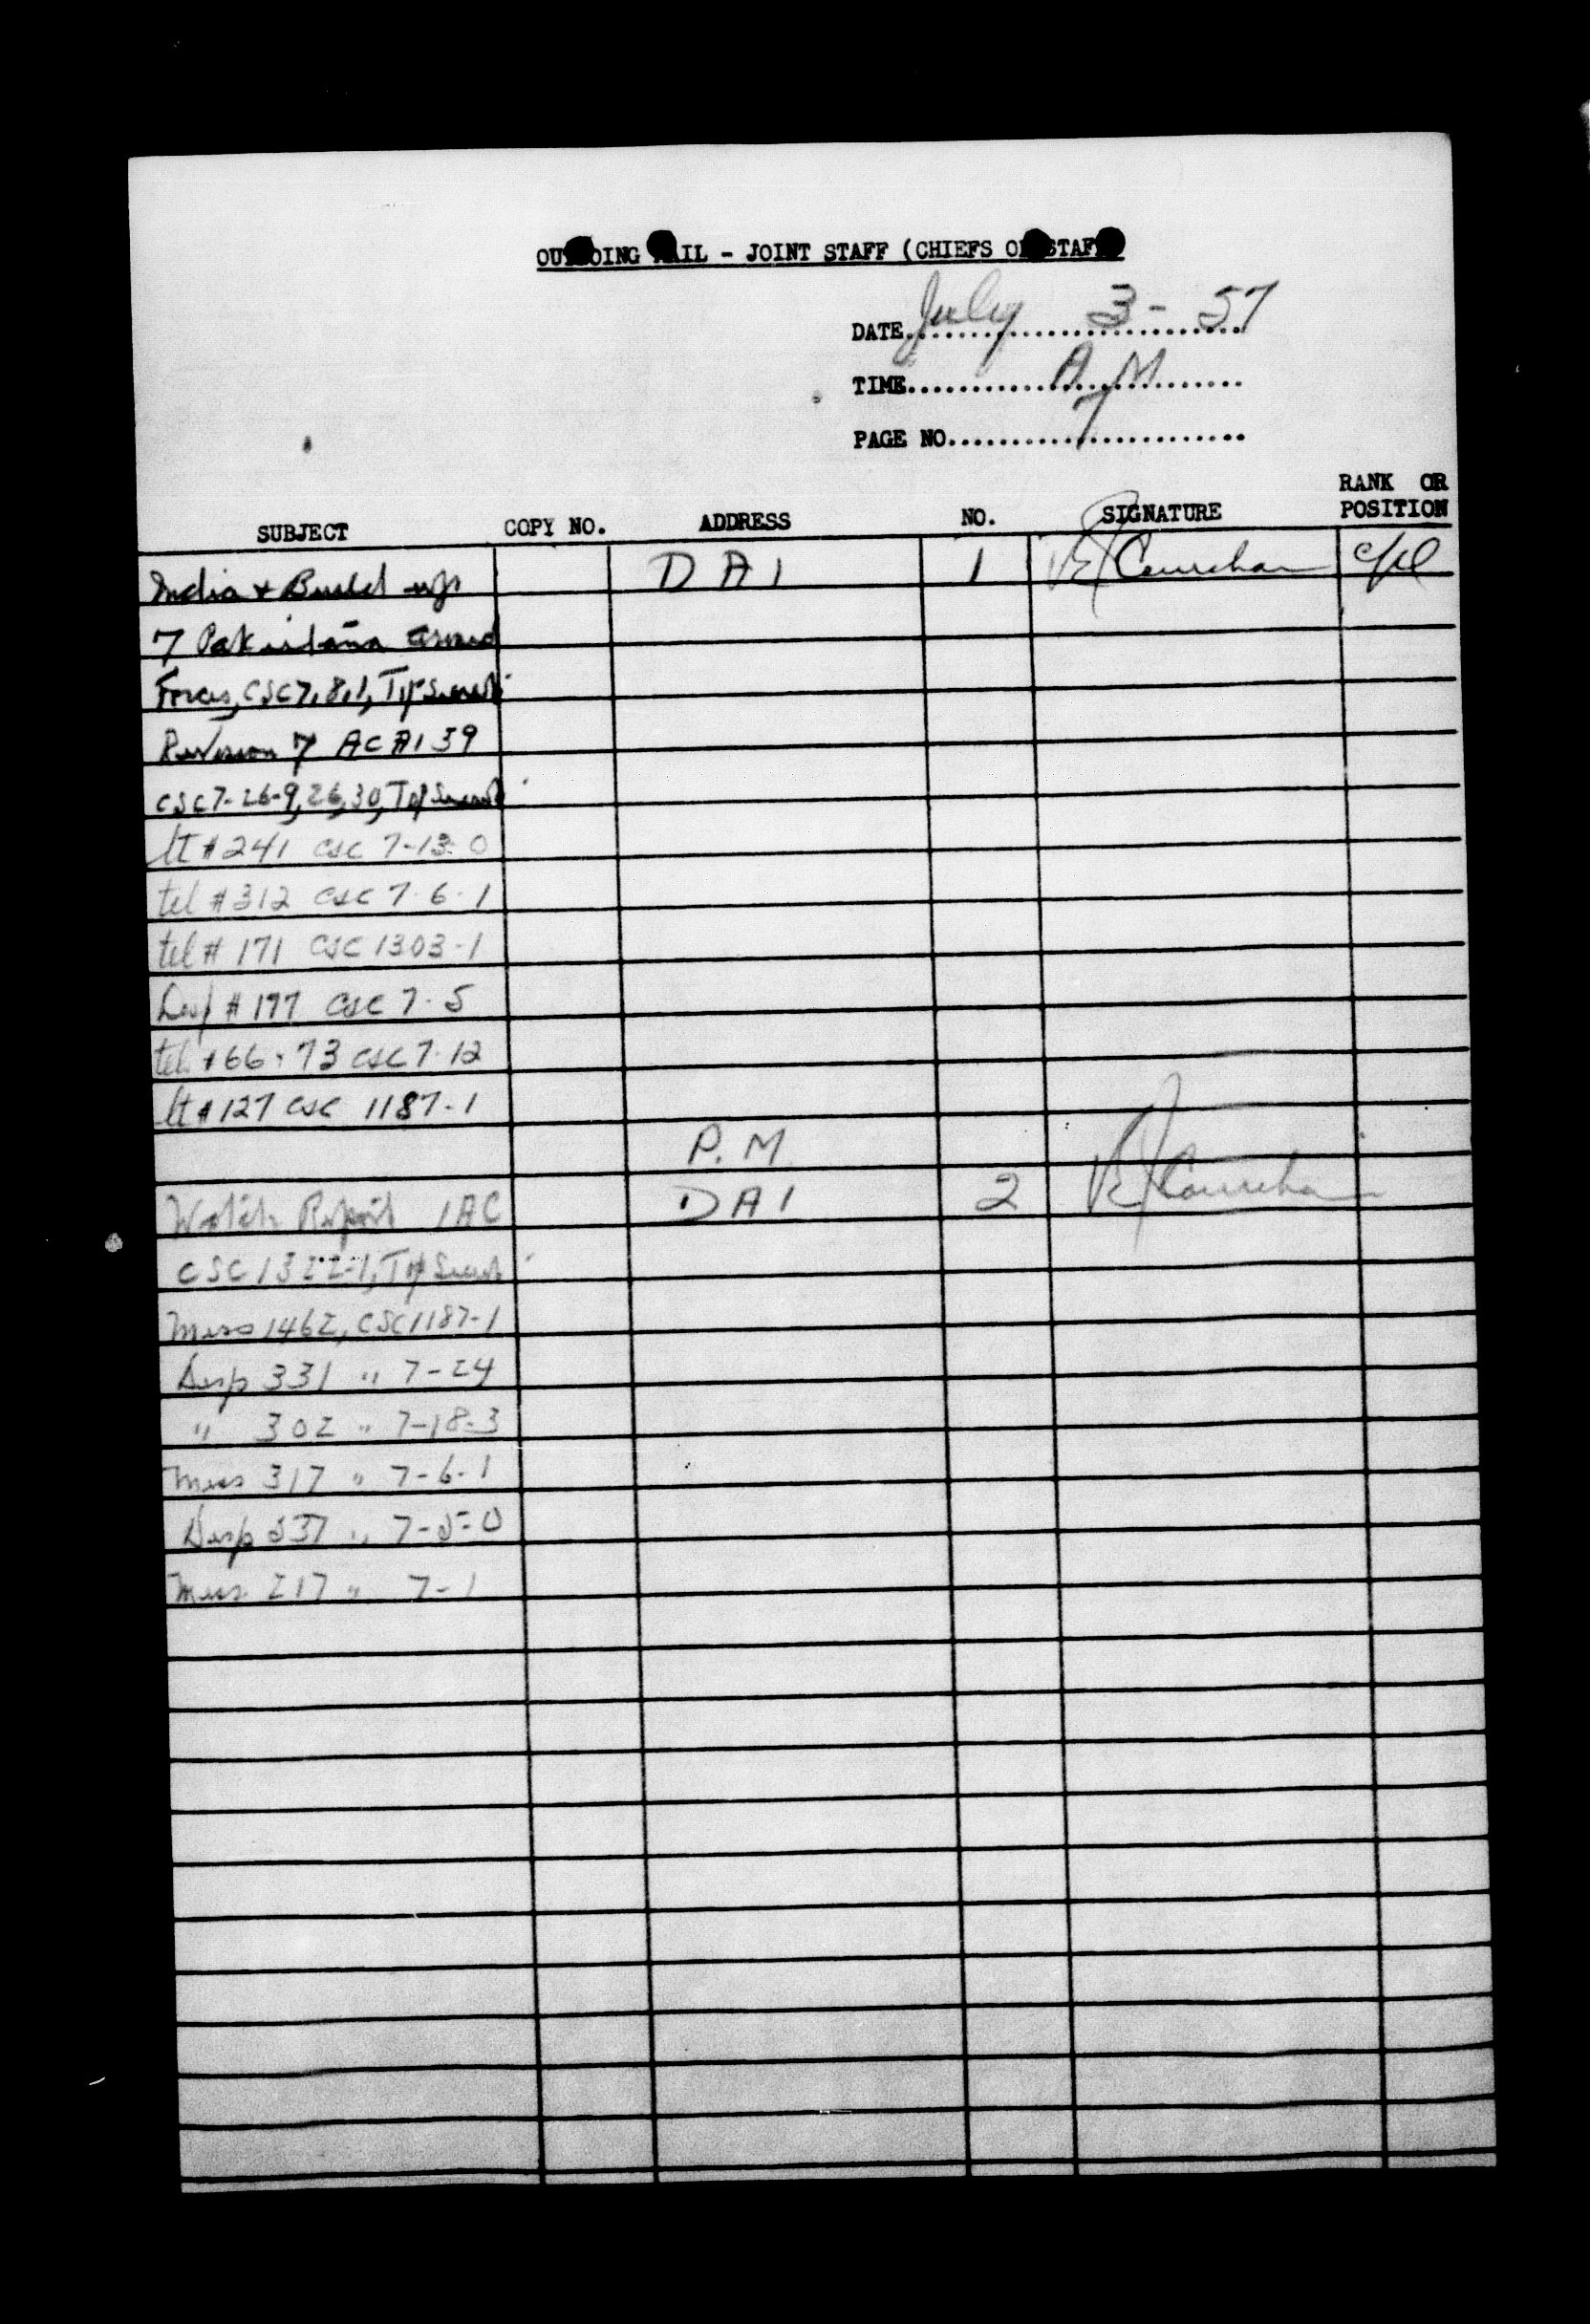 OUTGOING MAIL - JOINT STAFF (CHIEFS OF STAFF)
DATE July 3 - 57
TIME A.M
PAGE NO. 7
SUBJECT COPY NO. ADDRESS NO. SIGNATURE RANK OR POSITION
India & Build up D A I 1 Cpl
7 Pakistana Armed
Forces, CSC 7.8.1, Top Secret
Revision 7 ACAI 39
CSC 7-26-9, 26, 30, Top Secret
lt # 241 csc 7-13-0
tel # 312 csc 7.6.1
tel # 171 CSC 1303-1
Desp # 177 csc 7.5
tel. # 66, 73 csc 7.12
lt # 127 csc 1187-1
P.M
Watch Report IAC D A I 2
CSC 1322-1, Top Secret
Mess 1462, CSC 1187-1
Desp 331 " 7-24
" 302 " 7-18-3
Mess 317 " 7-6-1
Desp 337 " 7-5-0
Mess. 217 " 7-1